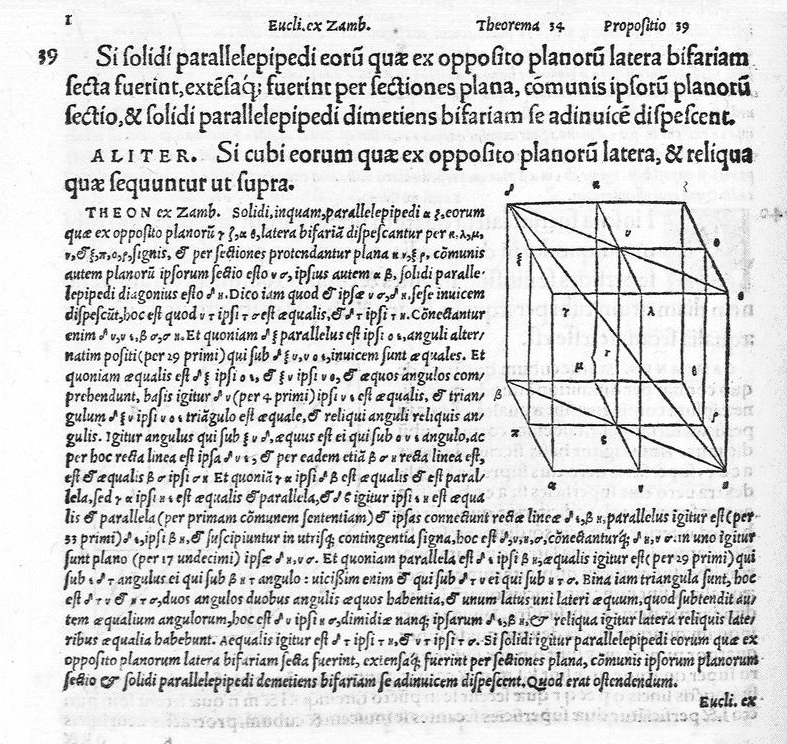 I
Eucli.ex Zamb. Theorema 34 Propositio 39
39 Si solidi parallelepipedi eorũ quæ ex opposito planorũ latera bifariam
secta fuerint,extẽsaq́; fuerint per sectiones plana, cõmunis ipsorũ planorũ
sectio,& solidi parallelepipedi dimetiens bifariam se adinuicẽ dispescent.
ALITER. Si cubi eorum quæ ex opposito planorũ latera, & reliqua
quæ sequuntur ut supra.
THEON ex Zamb. Solidi,inquam,parallelepipedi α ζ,eorum
quæ ex opposito planorũ γ ζ,α θ,latera bifariã dispescantur per κ,λ,μ,
ν,& ξ,π,ο,ρ,signis, & per sectiones protendantur plana κ ν,ξ ρ, cõmunis
autem planorũ ipsorum sectio esto υ σ, ipsius autem α β, solidi paralle-
lepipedi diagonius esto δ η. Dico iam quod & ipsæ υ σ,δ η, sese inuicem
dispescũt,hoc est quod υ τ ipsi τ σ est æqualis,& δ τ ipsi τ η. Cõnectantur
enim δ υ,υ ε,β σ,σ η. Et quoniam δ ξ parallelus est ipsi ο ε, anguli alter-
natim positi(per 29 primi)qui sub δ ξ υ,υ ο ε,inuicem sunt æquales. Et
quoniam æqualis est δ ξ ipsi ο ε, & ξ υ ipsi υ ο, & æquos angulos com-
prehendunt, basis igitur δ υ (per 4 primi)ipsi υ ε est æqualis, & trian-
gulum δ ξ υ ipsi υ ο ε triãgulo est æquale,& reliqui anguli reliquis an-
gulis. Igitur angulus qui sub ξ υ δ,æquus est ei qui sub ο υ ε angulo,ac
per hoc recta linea est ipsa δ υ ε, & per eadem etiã β σ η recta linea est,
est & æqualis β σ ipsi σ η Et quoniã γ α ipsi δ β est æqualis & est paral-
lela,sed γ α ipsi η ε est æqualis & parallela,& δ β igitur ipsi ε η est æqua
lis & parallela (per primam cõmunem sententiam) & ipsas connectunt rectæ lineæ δ ε,β η,parallelus igitur est (per
33 primi) δ ε,ipsi β η,& suscipiuntur in utrisq; contingentia signa,hoc est δ,υ,η,σ,cõnectanturq́; δ η,υ σ.in uno igitur
sunt plano (per 17 undecimi) ipsæ δ η,υ σ. Et quoniam parallela est δ ε ipsi β η,æqualis igitur est(per 29 primi) qui
sub ε δ τ angulus ei qui sub β η τ angulo : uicißim enim & qui sub δ τ υ ei qui sub η τ σ. Bina iam triangula sunt, hoc
est δ τ υ & η τ σ,duos angulos duobus angulis æquos habentia,& unum latus uni lateri æquum,quod subtendit au-
tem æqualium angulorum,hoc est δ υ ipsi η σ,dimidiæ nanq; ipsarum δ ε,β η,& reliqua igitur latera reliquis late-
ribus æqualia habebunt. Aequalis igitur est δ τ ipsi τ η,& υ τ ipsi τ σ. Si solidi igitur parallelepipedi eorum quæ ex
opposito planorum latera bifariam secta fuerint, extensaq́; fuerint per sectiones plana, cõmunis ipsorum planorum
sectio & solidi parallelepipedi demetiens bifariam se adinuicem dispescent. Quod erat ostendendum.
Eucli. ex